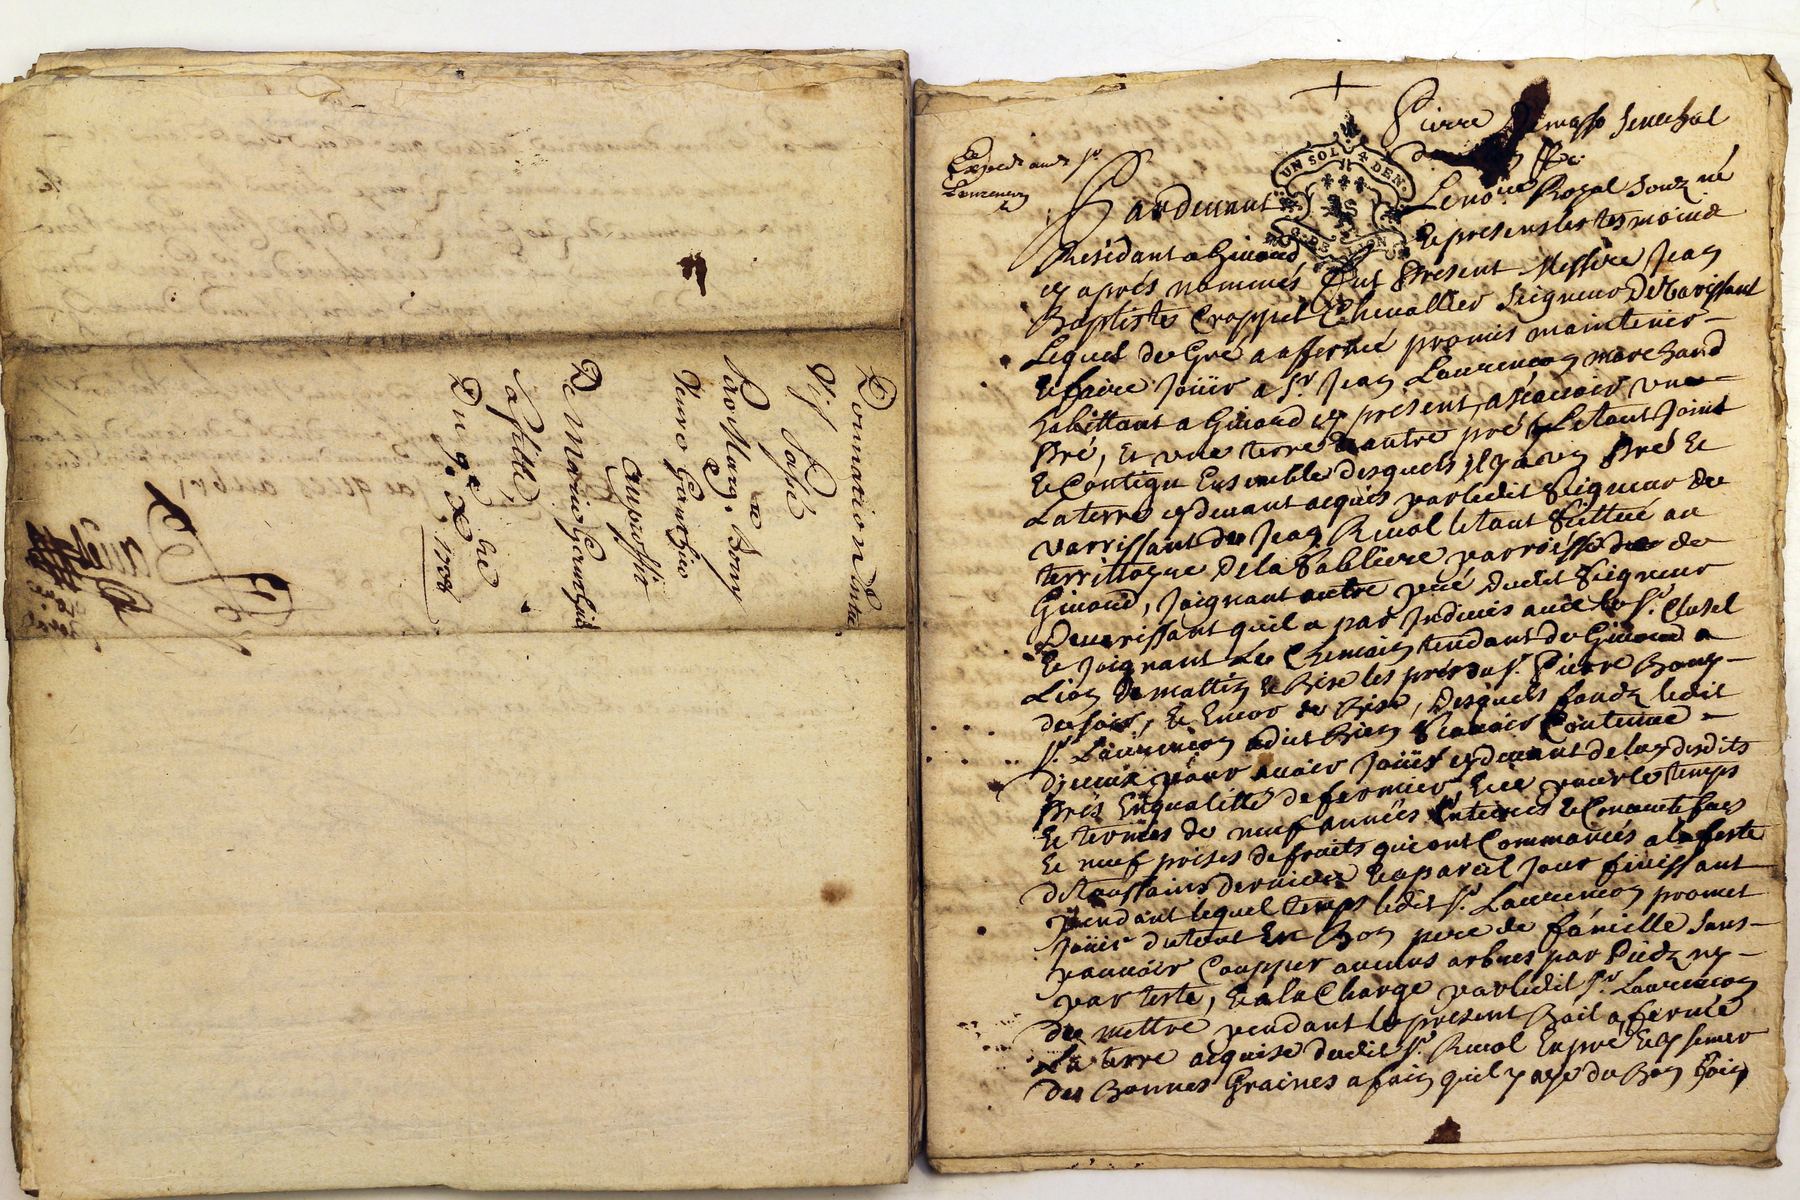 Donnation Entre
Vif Passé
Par Marg.te Bony
Veuve
De Marie
Sa fille
Du 9.e X.bre 1708
Pierre Demasso Senechal
de
Expedié audt Sr
Laurencon
UN SOL. 4 DEN.
G. DE LYON
Pardevant Le no.re Royal Souz.né
Résidant a Givord, Et presens les tesmoins
cy aprés nommés fut Present Messire Jean
Baptiste Croppet Chevallier Seigneur De Varissant
Lequel de Gré a affermé promis maintenir
et faire Joüir a Sr Jean Laurencon marchand
habittant a Givord cy present, a sçavoir une
Pré, Et une terre Et autre pré Le tout Joint
Et Contigu Ensemble desquels il y a un Pré Et
La terre cy devant acquis par ledit Seigneur De
Varrissant de Jean Rivol le tout Scittué au
territoyre De la Sabliere parroisse de
Givord, Joignant autre pré dudit Seigneur
De Varissant quil a par Indivis avec le Sr. Clusel
Et Joignant Le Chemain tendant de Givord a
Lion De mattin Et Bize les prés du Sr. Pierre Bony
de soir, Et Encor de Bize, Desquels fondz ledit
Sr. Laurencon a dit Bien Scavoir Contenue
D'iceux pour avoir Joüir cy devant de lun desdits
Prés En qualitté de fermier, Et ce pour le temps
Et termes de neuf années Entieres Et Consecutives
Et neuf prises de fruits qui ont Commancés a la feste
de Toussains dernier Et a pareil Jour finissant
Pendant lequel temps ledit Sr. Laurencon promet
Joüir du tout En Bon pere de famille Sans
pouvoir Coupper aucuns arbres par Pieds ny
par teste, Et a la Charge par ledit Sr. Laurencon
de mettre pendant le present Bail a ferme
La terre acquise dudit Sr. Rivol En pré Et y semer
des Bonnes Graines afain quil y aye du Bon foin